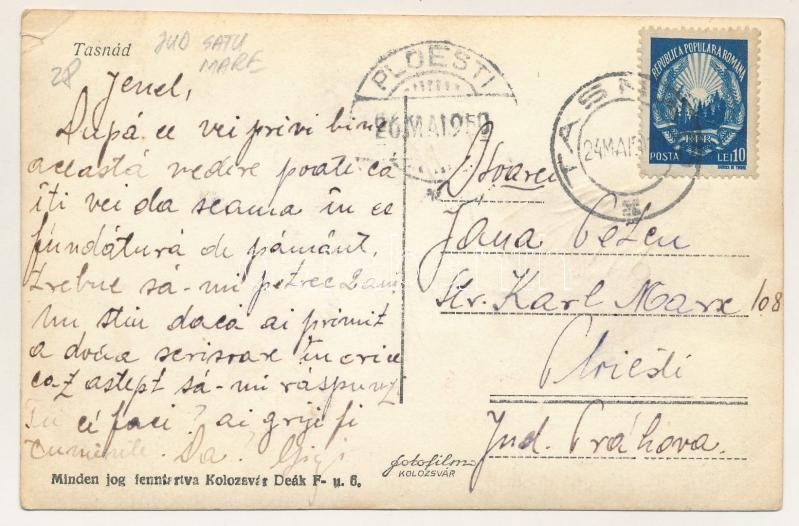 Tasnád
JUD SATU
MARE
28
Jenel,
După ce vei privi bine
această vedere poate că
îți vei da seama în ce
fundătură de pământ,
trebue să-mi petrec 2 ani
nu știu dacă ai primit
a doua scrisoare în orice
caz aștept să-mi răspunzi
Tu ce faci? ai grije fi
cuminte. Da? Gigi
Minden jog fenntartva Kolozsvár Deák F- u. 6.
fotofilm
KOLOZSVÁR
PLOESTI
26 MAI 950
TASNAD
24 MAI 950
REPUBLICA POPULARA ROMANA
RPR
POSTA LEI 10
Jana Petcu
Str. Karl Marx 108
Ploiești
Jud. Prahova.